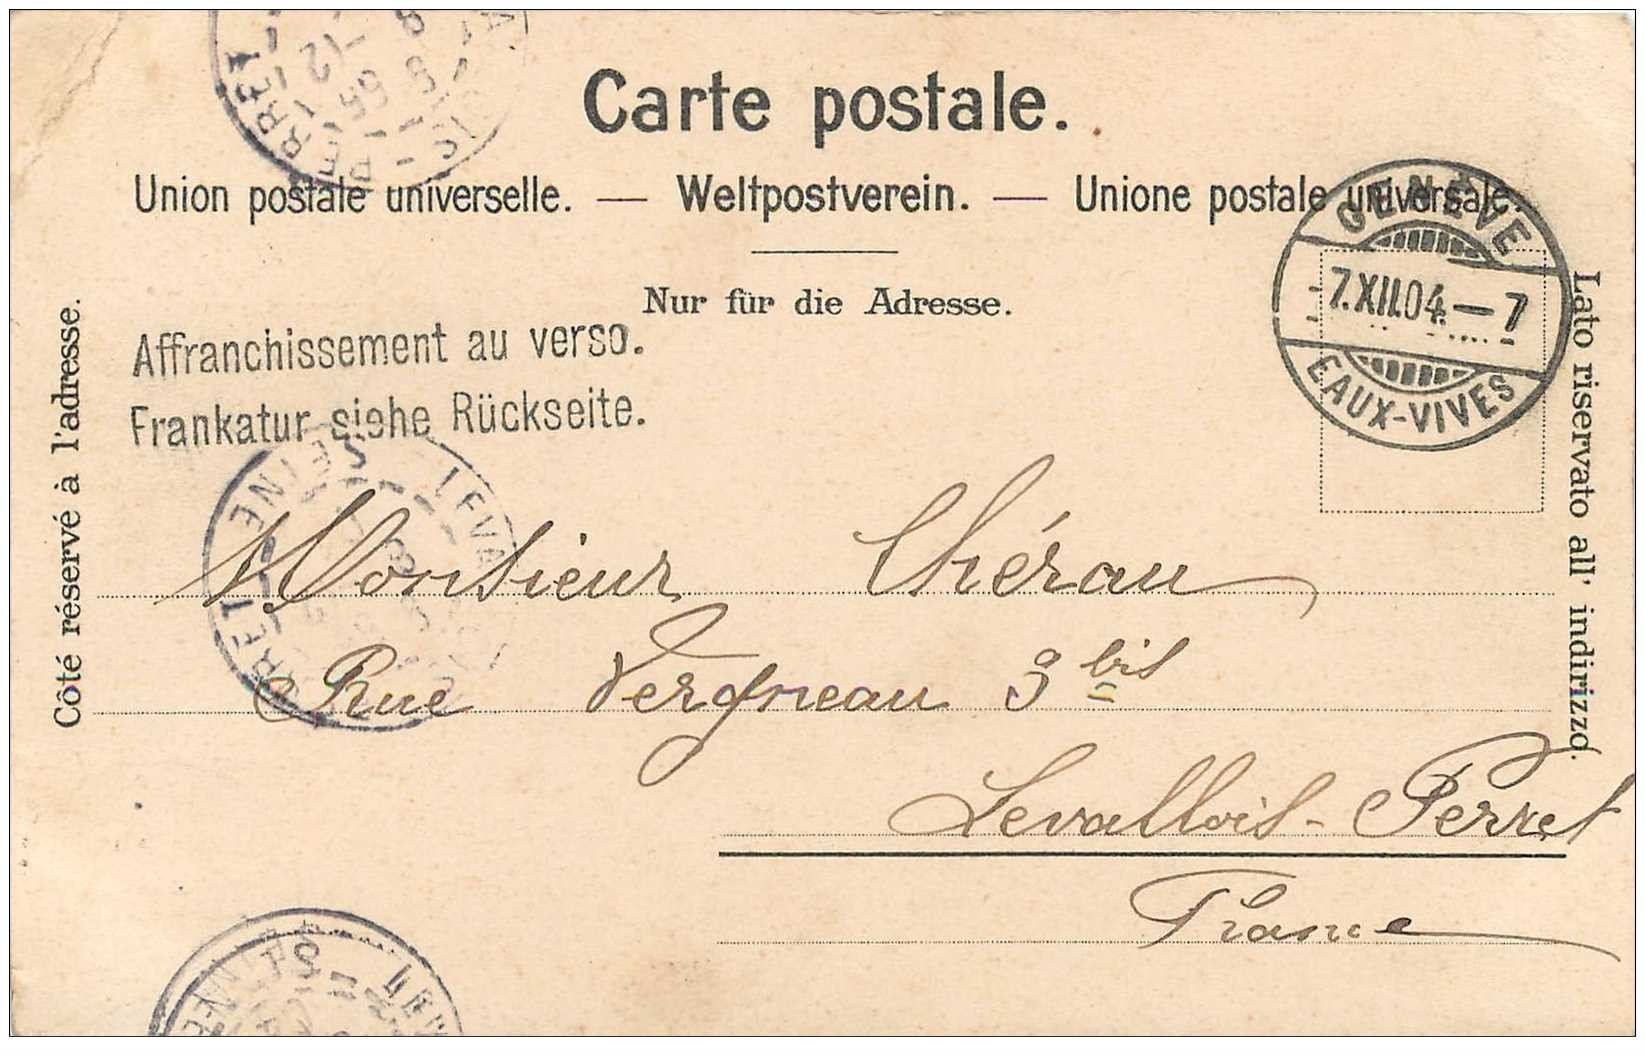 Carte postale.
Union postale universelle. — Weltpostverein. — Unione postale universale.
Nur für die Adresse.
Côté réservé à l'adresse.
Lato riservato all' indirizzo.
Affranchissement au verso.
Frankatur siehe Rückseite.
GENÈVE
7.XII.04.—7
EAUX-VIVES
Monsieur Chérau
Rue Vergneau 3 bis
Levallois-Perret
France
PERRET
LEVA
SEINE
RRET
LEV